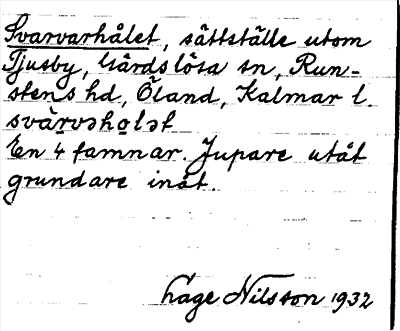 Svarvarhålet, sättställe utom
Tjusby, Gärdslösa sn, Run-
stens hd, Öland, Kalmar l.
svàrvəhọlət
En 4 famnar. Jupare utåt
grundare inåt.
Åage Nilsson 1932